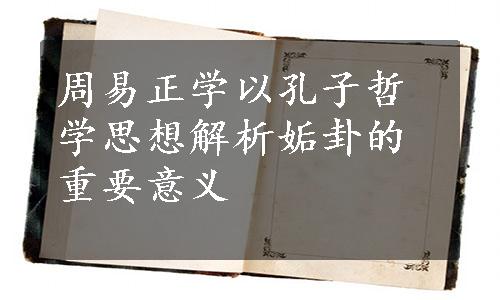 周易正学以孔子哲
学思想解析姤卦的
重要意义